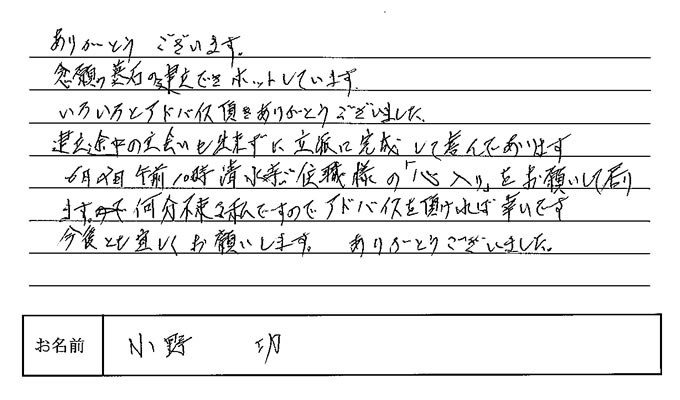 ありがとう ございます。
念願の墓石の建立でき ホットしています。
いろいろとアドバイス頂きありがとうございました。
建立途中の立会いも出来ずに 立派に完成して喜んでおります
6月 日 午前10時 清水寺 住職様の「心入り」をお願いして居り
ます。 何分不束な私ですのでアドバイスを頂ければ幸いです
今後とも宜しくお願いします。 ありがとうございました。
お名前 小野 功